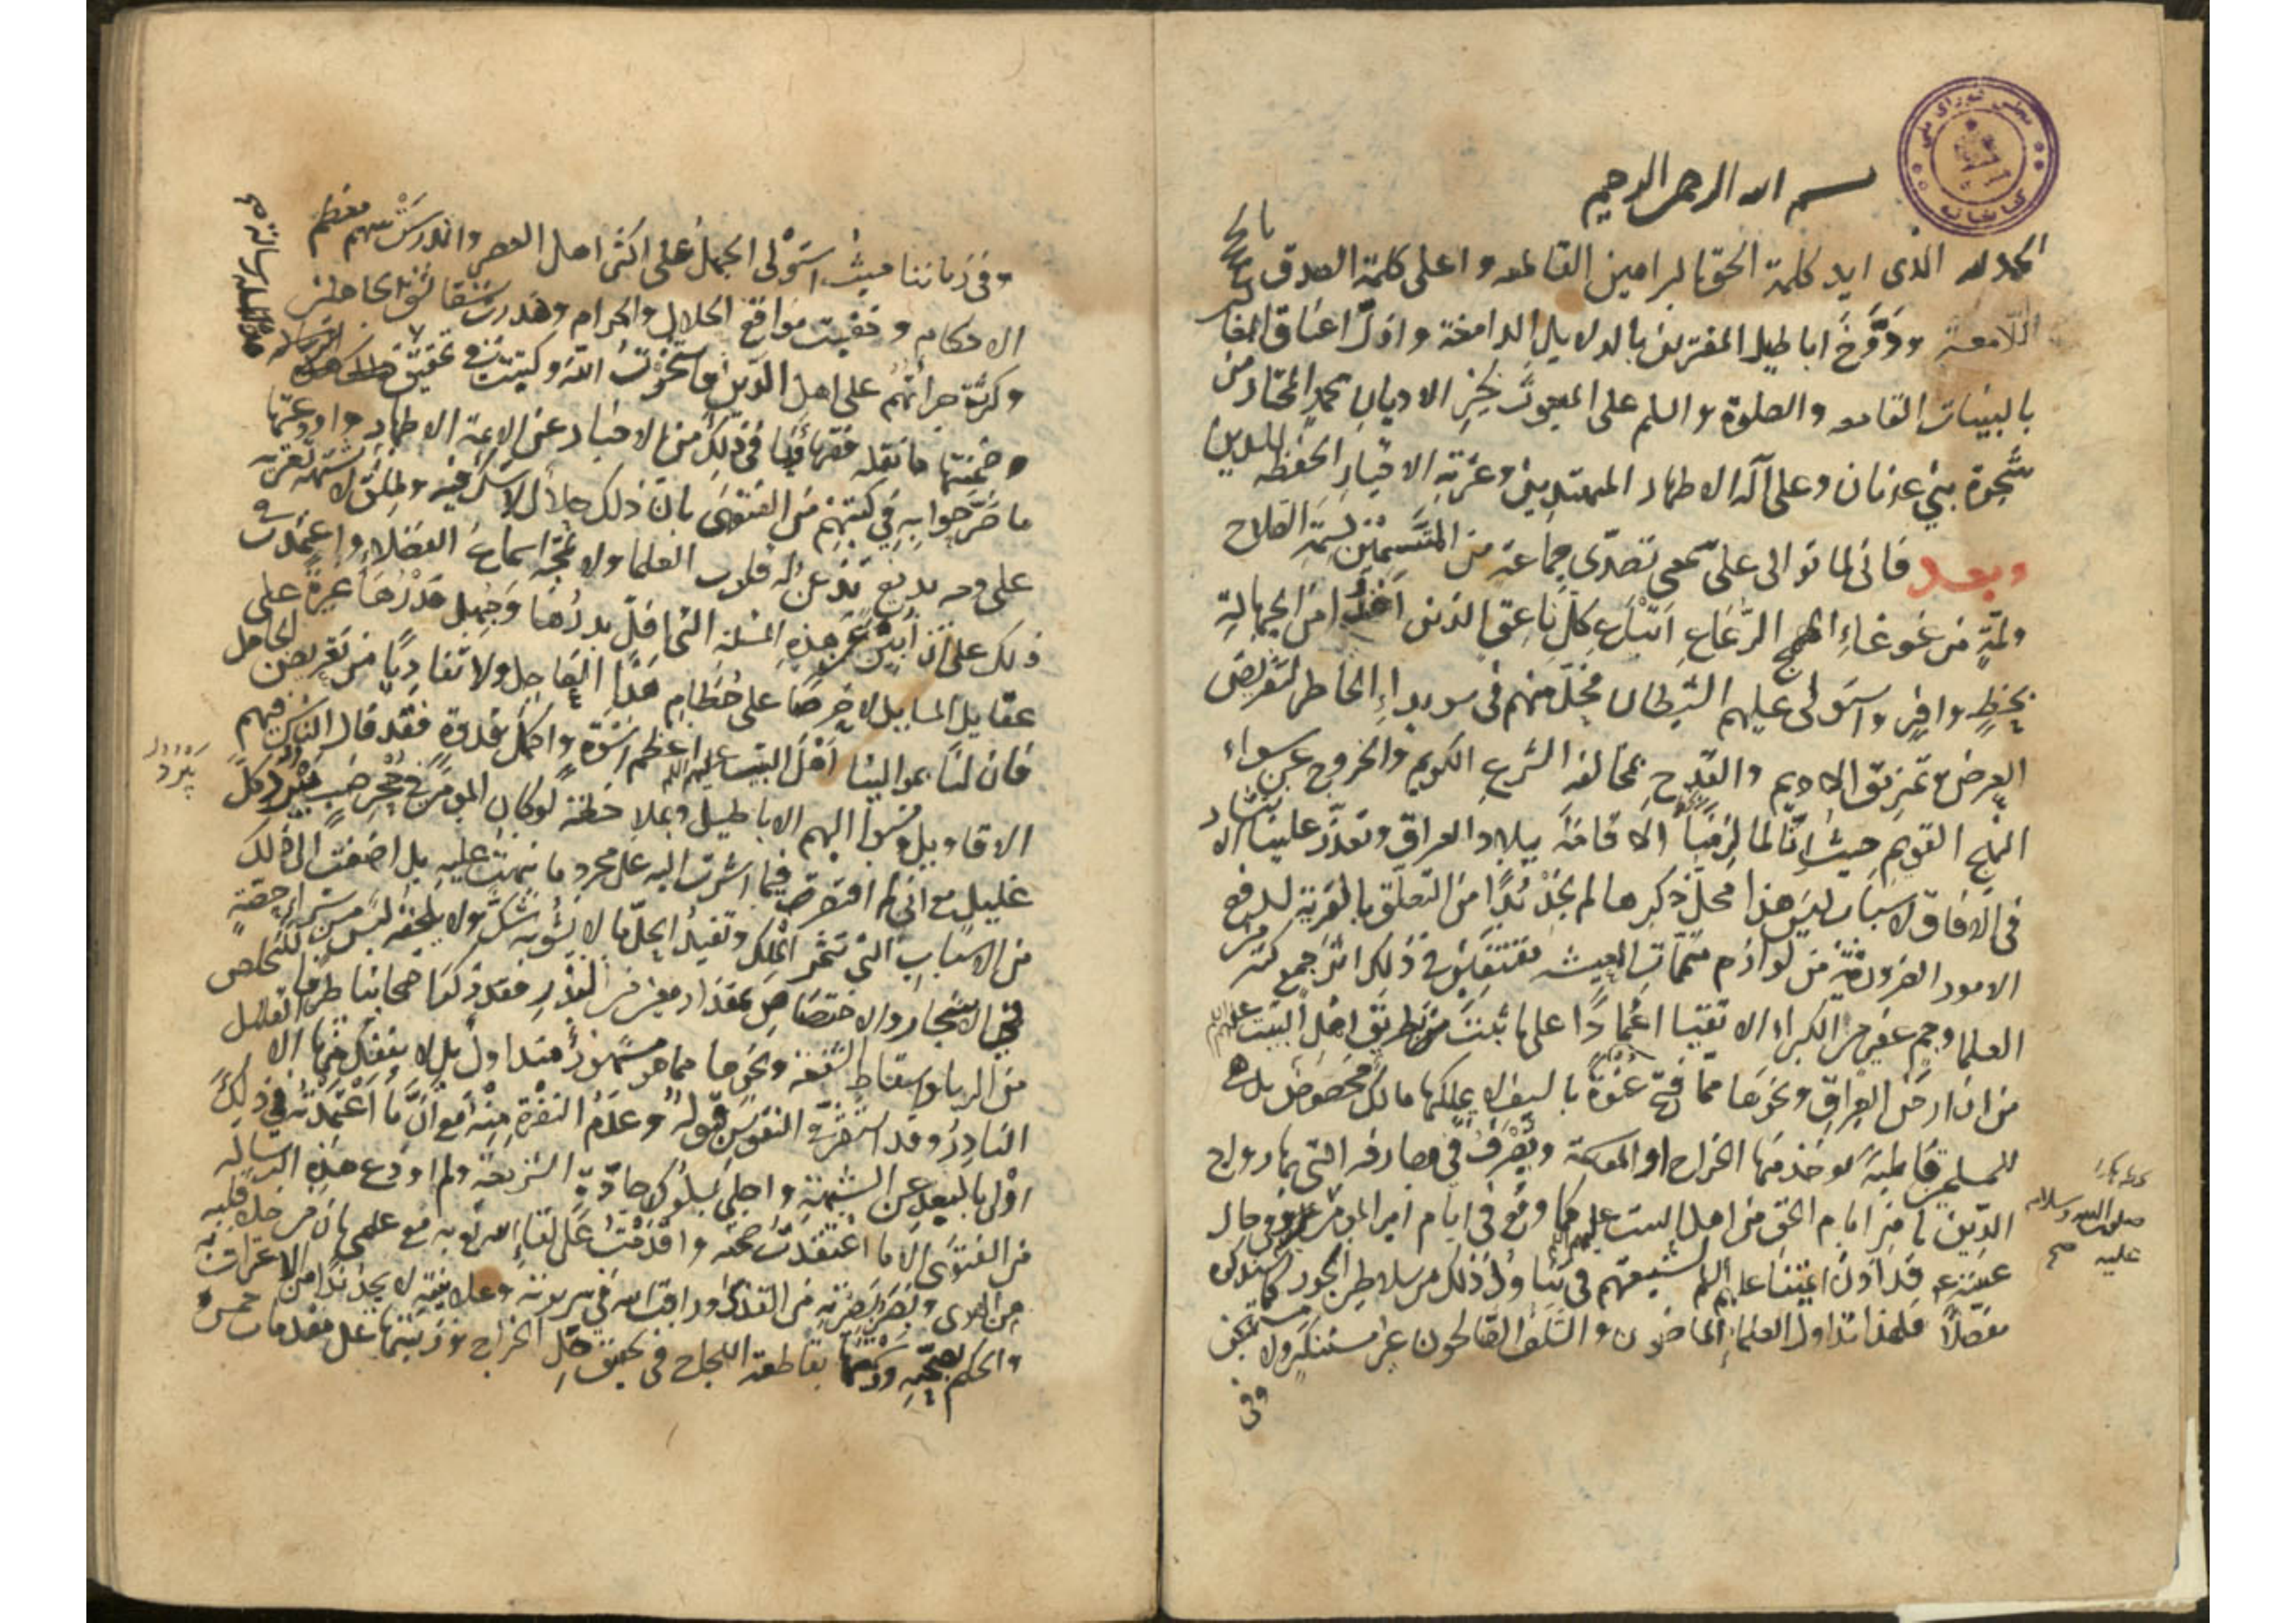 بسم الله الرحمن الرحيم
الحمد لله الذى ايد كلمة الحق بالبراهين القاطعه و اعلى كلمة الصدق بالحجج
اللامعة ودوخ اباطيل المفترين بالدلايل الدامغة واذل اعناق
بالبينات القامعه والصلوة والسلم على المبعوث بخير الاديان محمد المختار من
شجرة بني عدنان وعلى آله الاطهار المهتدين وعترته الاخيار الحفظه للدين
وبعد فانى لما توالى على سمعى تصدى جماعة من المتسمين بسمة الصلاح
وثلة من غوغاء الهمج الرعاع اتباع كل ناعق الذين اخذوا من الجهالة
بحظ وافر واستولى عليهم الشيطان فحل منهم فى سويداء الخاطر لتقريض
العرض وتمزيق الاديم والقدح بمخالفة الشرع الكريم والخروج عن سواء
النهج القويم حيث انا لما لزمنا الاقامة ببلاد العراق وتعذر علينا الانتشار
فى الآفاق لاسباب ليس هذا محل ذكرها لم نجد بدا من التعلق بالغربة لدفع
الامور الضرورية من لوازم متممات المعيشه مقتفين فى ذلك اثر جمع كثير من
العلما وجم غفير من الكبراء الاتقيا اعتمادا على ما ثبت من طريق اهل البيت عليهم السلم
من ان ارض العراق ونحوها مما فتح عنوة بالسيف لا يملكها مالك مخصوص بل هى
للمسلمين قاطبة يوخذ منها الخراج او المقاسمة ويصرف فى مصارفه التى بها رواج
الدين بامر امام الحق من اهل البيت عليهم السلم كما وقع فى ايام امير المومنين
صلوات الله وسلامه
عليه صح
وفى حال
غيبته ع قد اذن ائمتنا عليهم السلم لشيعتهم فى تناول ذلك من سلاطين الجور كما سنذكره
مفصلا فلهذا تداوله العلماء الماضون والسلف الصالحون غير مستنكر ولا مستهجن
وفى
وفى زماننا حيث استولى الجهل على اكثر اهل العصر واندرس بينهم معظم
الاحكام وخفيت مواقع الحلال والحرام وهدرت شقاشق الجاهلين
وكثرة جراتهم على اهل الدين استخرت الله وكتبت فى تحقيق
هذه المسئلة رسالة صح
وضمنتها ما نقله فقهاؤنا فى ذلك من الاخبار عن الائمة الاطهار واودعتها
ما صرحوا به فى كتبهم من الفتوى بان ذلك حلال لا شك فيه وطلق لا شبهة تعتريه
على وجه بديع تذعن له قلوب العلما ولا تمجه اسماع الفضلاء واعتمدت فى
ذلك على ان ابين عن هذه المسئلة التى افل بدرها وجهل قدرها غيرة على
عقايل المسايل لا حرصا على حطام هذا العاجل ولا تفاديا من تعريض الجاهل
فان لنا بموالينا اهل البيت عليهم السلم اعظم اسوة واكمل قدوة فقد قال الناس فيهم
الاقاويل ونسبوا اليهم الاباطيل وبملاحظة لو كان المومن فى جحر ضب يبرد كل
يبرد
غليل مع انى لم اقتصر فيما اشرت اليه على مجرد ما نبهت عليه بل اضفت الى ذلك
من الاسباب التى تثمر الملك وتفيد الحل ما لا يشوبه شك ولا يلحقه لبس من شراء حصة
فى الاشجار والاختصاص بمقدار معين من البذر فقد ذكر اصحابنا طرقا للتخلص
من الربا واسقاط الشفعة ونحوها مما هو مشهور متداول بل لا ينفك منها الا القليل
النادر وقد استقرت النفوس قبوله وعدم النفرة منه مع ان ما اعتمدته فى ذلك
اولى بالبعد عن الشبهة واجلى بسلوك جادة الشريعة ولم اودع هذه الرسالة
من الفتوى الا ما اعتقدت صحته واقدمت على لقاء الله به مع علمى بان من خلا قلبه
من الهوى وبصر بصيرته من القذى وراقب الله فى سريرته وعلانيته لا يجد بدا من الاعتراف به
والحكم بصحته وسميتها بقاطعة اللجاج فى تحقيق حل الخراج ورتبتها على مقدمات خمس